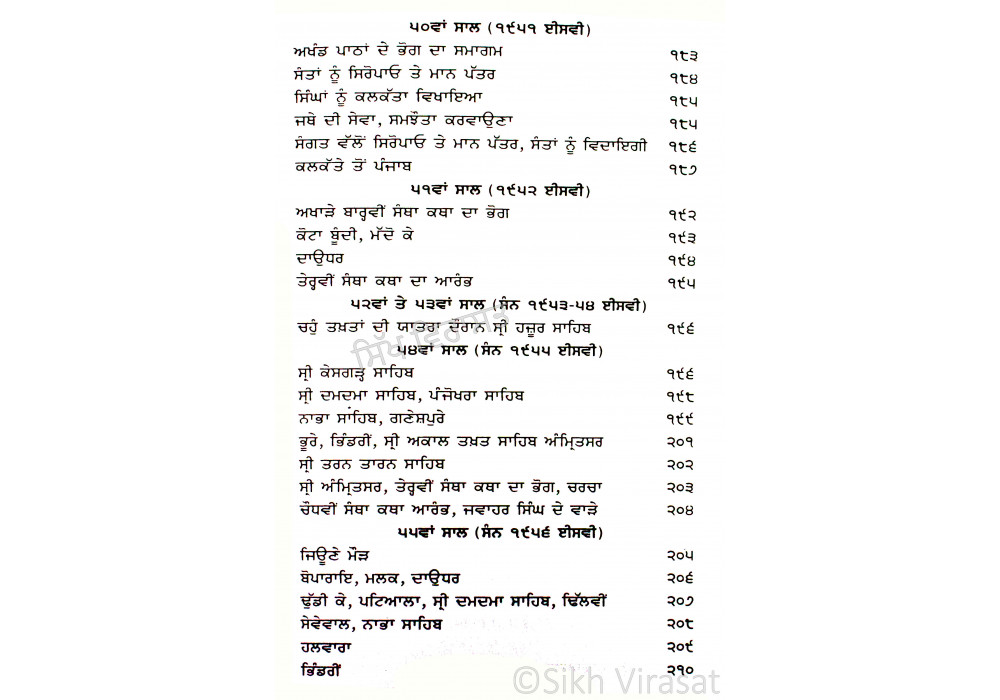 ੫੦ਵਾਂ ਸਾਲ (੧੯੫੧ ਈਸਵੀ)
ਅਖੰਡ ਪਾਠਾਂ ਦੇ ਭੋਗ ਦਾ ਸਮਾਗਮ ੧੮੩
ਸੰਤਾਂ ਨੂੰ ਸਿਰੋਪਾਓ ਤੇ ਮਾਨ ਪੱਤਰ ੧੮੪
ਸਿੰਘਾਂ ਨੂੰ ਕਲਕੱਤਾ ਵਿਖਾਇਆ ੧੮੫
ਜਥੇ ਦੀ ਸੇਵਾ, ਸਮਝੌਤਾ ਕਰਵਾਉਣਾ ੧੮੫
ਸੰਗਤ ਵੱਲੋਂ ਸਿਰੋਪਾਓ ਤੇ ਮਾਨ ਪੱਤਰ, ਸੰਤਾਂ ਨੂੰ ਵਿਦਾਇਗੀ ੧੮੬
ਕਲਕੱਤੇ ਤੋਂ ਪੰਜਾਬ ੧੮੭
੫੧ਵਾਂ ਸਾਲ (੧੯੫੨ ਈਸਵੀ)
ਅਖਾੜੇ ਬਾਰ੍ਹਵੀਂ ਸੰਥਾ ਕਥਾ ਦਾ ਭੋਗ ੧੯੨
ਕੋਟਾ ਬੂੰਦੀ, ਮੱਦੋ ਕੇ ੧੯੩
ਦਾਉਧਰ ੧੯੪
ਤੇਰ੍ਹਵੀਂ ਸੰਥਾ ਕਥਾ ਦਾ ਆਰੰਭ ੧੯੫
੫੨ਵਾਂ ਤੇ ੫੩ਵਾਂ ਸਾਲ (ਸੰਨ ੧੯੫੩-੫੪ ਈਸਵੀ)
ਚਹੁੰ ਤਖ਼ਤਾਂ ਦੀ ਯਾਤਰਾ ਦੌਰਾਨ ਸ੍ਰੀ ਹਜ਼ੂਰ ਸਾਹਿਬ ੧੯੬
ਸਿੱਖ ਵਿਰਾਸਤ
੫੪ਵਾਂ ਸਾਲ (ਸੰਨ ੧੯੫੫ ਈਸਵੀ)
ਸ੍ਰੀ ਕੇਸਗੜ੍ਹ ਸਾਹਿਬ ੧੯੬
ਸ੍ਰੀ ਦਮਦਮਾ ਸਾਹਿਬ, ਪੰਜੋਖਰਾ ਸਾਹਿਬ ੧੯੮
ਨਾਭਾ ਸਾਹਿਬ, ਗਣੇਸ਼ਪੁਰੇ ੧੯੯
ਭੂਰੇ, ਭਿੰਡਰੀਂ, ਸ੍ਰੀ ਅਕਾਲ ਤਖ਼ਤ ਸਾਹਿਬ ਅੰਮ੍ਰਿਤਸਰ ੨੦੧
ਸ੍ਰੀ ਤਰਨ ਤਾਰਨ ਸਾਹਿਬ ੨੦੨
ਸ੍ਰੀ ਅੰਮ੍ਰਿਤਸਰ, ਤੇਰ੍ਹਵੀਂ ਸੰਥਾ ਕਥਾ ਦਾ ਭੋਗ, ਚਰਚਾ ੨੦੩
ਚੌਧਵੀਂ ਸੰਥਾ ਕਥਾ ਆਰੰਭ, ਜਵਾਹਰ ਸਿੰਘ ਦੇ ਵਾੜੇ ੨੦੪
੫੫ਵਾਂ ਸਾਲ (ਸੰਨ ੧੯੫੬ ਈਸਵੀ)
ਜਿਊਣੇ ਮੌੜ ੨੦੫
ਬੋਪਾਰਾਇ, ਮਲਕ, ਦਾਉਧਰ ੨੦੬
ਢੁੱਡੀ ਕੇ, ਪਟਿਆਲਾ, ਸ੍ਰੀ ਦਮਦਮਾ ਸਾਹਿਬ, ਢਿੱਲਵੀਂ ੨੦੭
ਸੇਵੇਵਾਲ, ਨਾਭਾ ਸਾਹਿਬ ੨੦੮
ਹਲਵਾਰਾ ੨੦੯
ਭਿੰਡਰੀਂ ੨੧੦
©Sikh Virasat